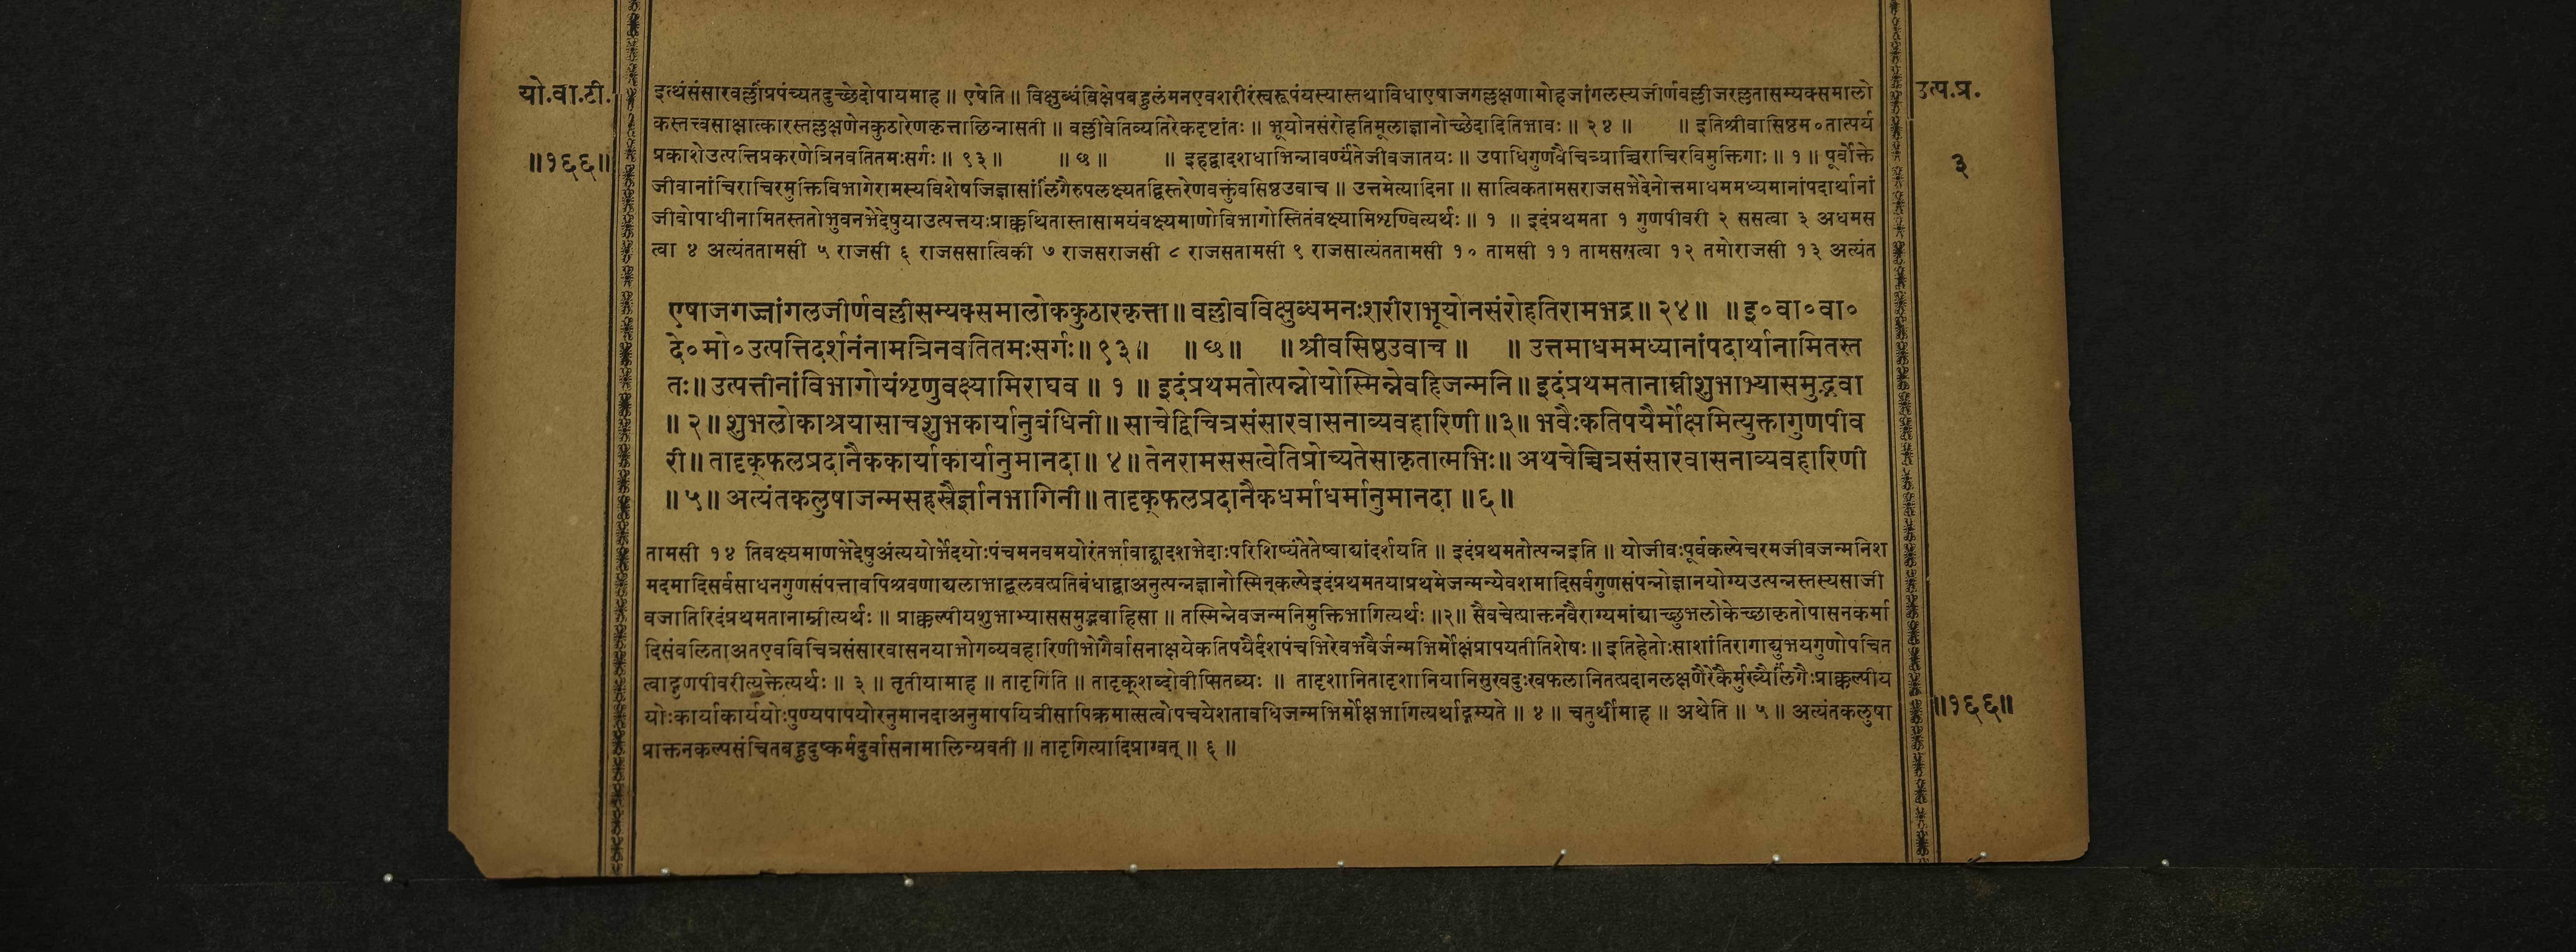 यो.वा.टी.
॥१६६॥
उत्प.प्र.
३
इत्थंसंसारवल्लींप्रपंच्यतदुच्छेदोपायमाह ॥ एषेति ॥ विक्षुब्धंविक्षेपबहुलंमनएवशरीरंस्वरूपंयस्यास्तथाविधाएषाजगल्लक्षणामोहजांगलस्यजीर्णवल्लीजरल्लतासम्यक्समालो
कस्तत्त्वसाक्षात्कारस्तल्लक्षणेनकुठारेणकृत्ताछिन्नासती ॥ वल्लीवेतिव्यतिरेकदृष्टांतः ॥ भूयोनसंरोहतिमूलाज्ञानोच्छेदादितिभावः ॥ २४ ॥ ॥ इतिश्रीवासिष्ठम॰तात्पर्य
प्रकाशेउत्पत्तिप्रकरणेत्रिनवतितमःसर्गः ॥ ९३ ॥ ॥ ७५ ॥ ॥ इहद्वादशधाभिन्नावर्ण्यंतेजीवजातयः ॥ उपाधिगुणवैचित्र्याच्चिराचिरविमुक्तिगाः ॥ १ ॥ पूर्वोक्ते
जीवानांचिराचिरमुक्तिविभागेरामस्यविशेषजिज्ञासांलिंगैरुपलक्ष्यतद्विस्तरेणवक्तुंवसिष्ठउवाच ॥ उत्तमेत्यादिना ॥ सात्विकतामसराजसभेदेनोत्तमाधममध्यमानांपदार्थानां
जीवोपाधीनामितस्ततोभुवनभेदेषुयाउत्पत्तयःप्राक्कथितास्तासामयंवक्ष्यमाणोविभागोस्तितंवक्ष्यामिशृण्वित्यर्थः ॥ १ ॥ इदंप्रथमता १ गुणपीवरी २ ससत्वा ३ अधमस
त्वा ४ अत्यंततामसी ५ राजसी ६ राजससात्विकी ७ राजसराजसी ८ राजसतामसी ९ राजसात्यंततामसी १० तामसी ११ तामससत्वा १२ तमोराजसी १३ अत्यंत
एषाजगज्जांगलजीर्णवल्लीसम्यक्समालोककुठारकृत्ता ॥ वल्लीवविक्षुब्धमनःशरीराभूयोनसंरोहतिरामभद्र ॥ २४ ॥ ॥ इ॰वा॰वा॰
दे॰मो॰उत्पत्तिदर्शनंनामत्रिनवतितमःसर्गः ॥ ९३ ॥ ॥ ७५ ॥ ॥ श्रीवसिष्ठउवाच ॥ ॥ उत्तमाधममध्यानांपदार्थानामितस्त
तः ॥ उत्पत्तीनांविभागोयंशृणुवक्ष्यामिराघव ॥ १ ॥ इदंप्रथमतोत्पन्नोयोस्मिन्नेवहिजन्मनि ॥ इदंप्रथमतानाम्नीशुभाभ्यासमुद्भवा
॥ २ ॥ शुभलोकाश्रयासाचशुभकार्यानुबंधिनी ॥ साचेद्विचित्रसंसारवासनाव्यवहारिणी ॥३॥ भवैःकतिपयैर्मोक्षमित्युक्तागुणपीव
री ॥ तादृक्फलप्रदानैककार्याकार्यानुमानदा ॥ ४ ॥ तेनरामससत्वेतिप्रोच्यतेसाकृतात्मभिः ॥ अथचेच्चित्रसंसारवासनाव्यवहारिणी
॥ ५ ॥ अत्यंतकलुषाजन्मसहस्रैर्ज्ञानभागिनी ॥ तादृक्फलप्रदानैकधर्माधर्मानुमानदा ॥ ६ ॥
तामसी १४ तिवक्ष्यमाणभेदेषुअंत्ययोर्भेदयोःपंचमनवमयोरंतर्भावाद्द्वादशभेदाःपरिशिष्यंतेतेष्वाद्यांदर्शयति ॥ इदंप्रथमतोत्पन्नइति ॥ योजीवःपूर्वकल्पेचरमजीवजन्मनिश
मदमादिसर्वसाधनगुणसंपत्तावपिश्रवणाद्यलाभाद्बलवत्प्रतिबंधाद्वाअनुत्पन्नज्ञानोस्मिन्कल्पेइदंप्रथमतयाप्रथमेजन्मन्येवशमादिसर्वगुणसंपन्नोज्ञानयोग्यउत्पन्नस्तस्यसाजी
वजातिरिदंप्रथमतानाम्नीत्यर्थः ॥ प्राक्कल्पीयशुभाभ्याससमुद्भवाहिसा ॥ तस्मिन्नेवजन्मनिमुक्तिभागित्यर्थः ॥२॥ सैवचेत्प्राक्तनवैराग्यमांद्याच्छुभलोकेच्छाकृतोपासनकर्मा
दिसंवलिताअतएवविचित्रसंसारवासनयाभोगव्यवहारिणीभोगैर्वासनाक्षयेकतिपयैर्दशपंचभिरेवभवैर्जन्मभिर्मोक्षंप्रापयतीतिशेषः ॥ इतिहेतोःसाशांतिरागाद्युभयगुणोपचित
त्वाद्गुणपीवरीत्युक्तेत्यर्थः ॥ ३ ॥ तृतीयामाह ॥ तादृगिति ॥ तादृक्शब्दोवीप्सितव्यः ॥ तादृशानितादृशानियानिसुखदुःखफलानितत्प्रदानलक्षणैरेकैर्मुख्यैर्लिंगैःप्राक्कल्पीय
योःकार्याकार्ययोःपुण्यपापयोरनुमानदाअनुमापयित्रीसापिक्रमात्सत्वोपचयेशतावधिजन्मभिर्मोक्षभागित्यर्थाद्गम्यते ॥ ४ ॥ चतुर्थीमाह ॥ अथेति ॥ ५ ॥ अत्यंतकलुषा
प्राक्तनकल्पसंचितबहुदुष्कर्मदुर्वासनामालिन्यवती ॥ तादृगित्यादिप्राग्वत् ॥ ६ ॥
॥१६६॥